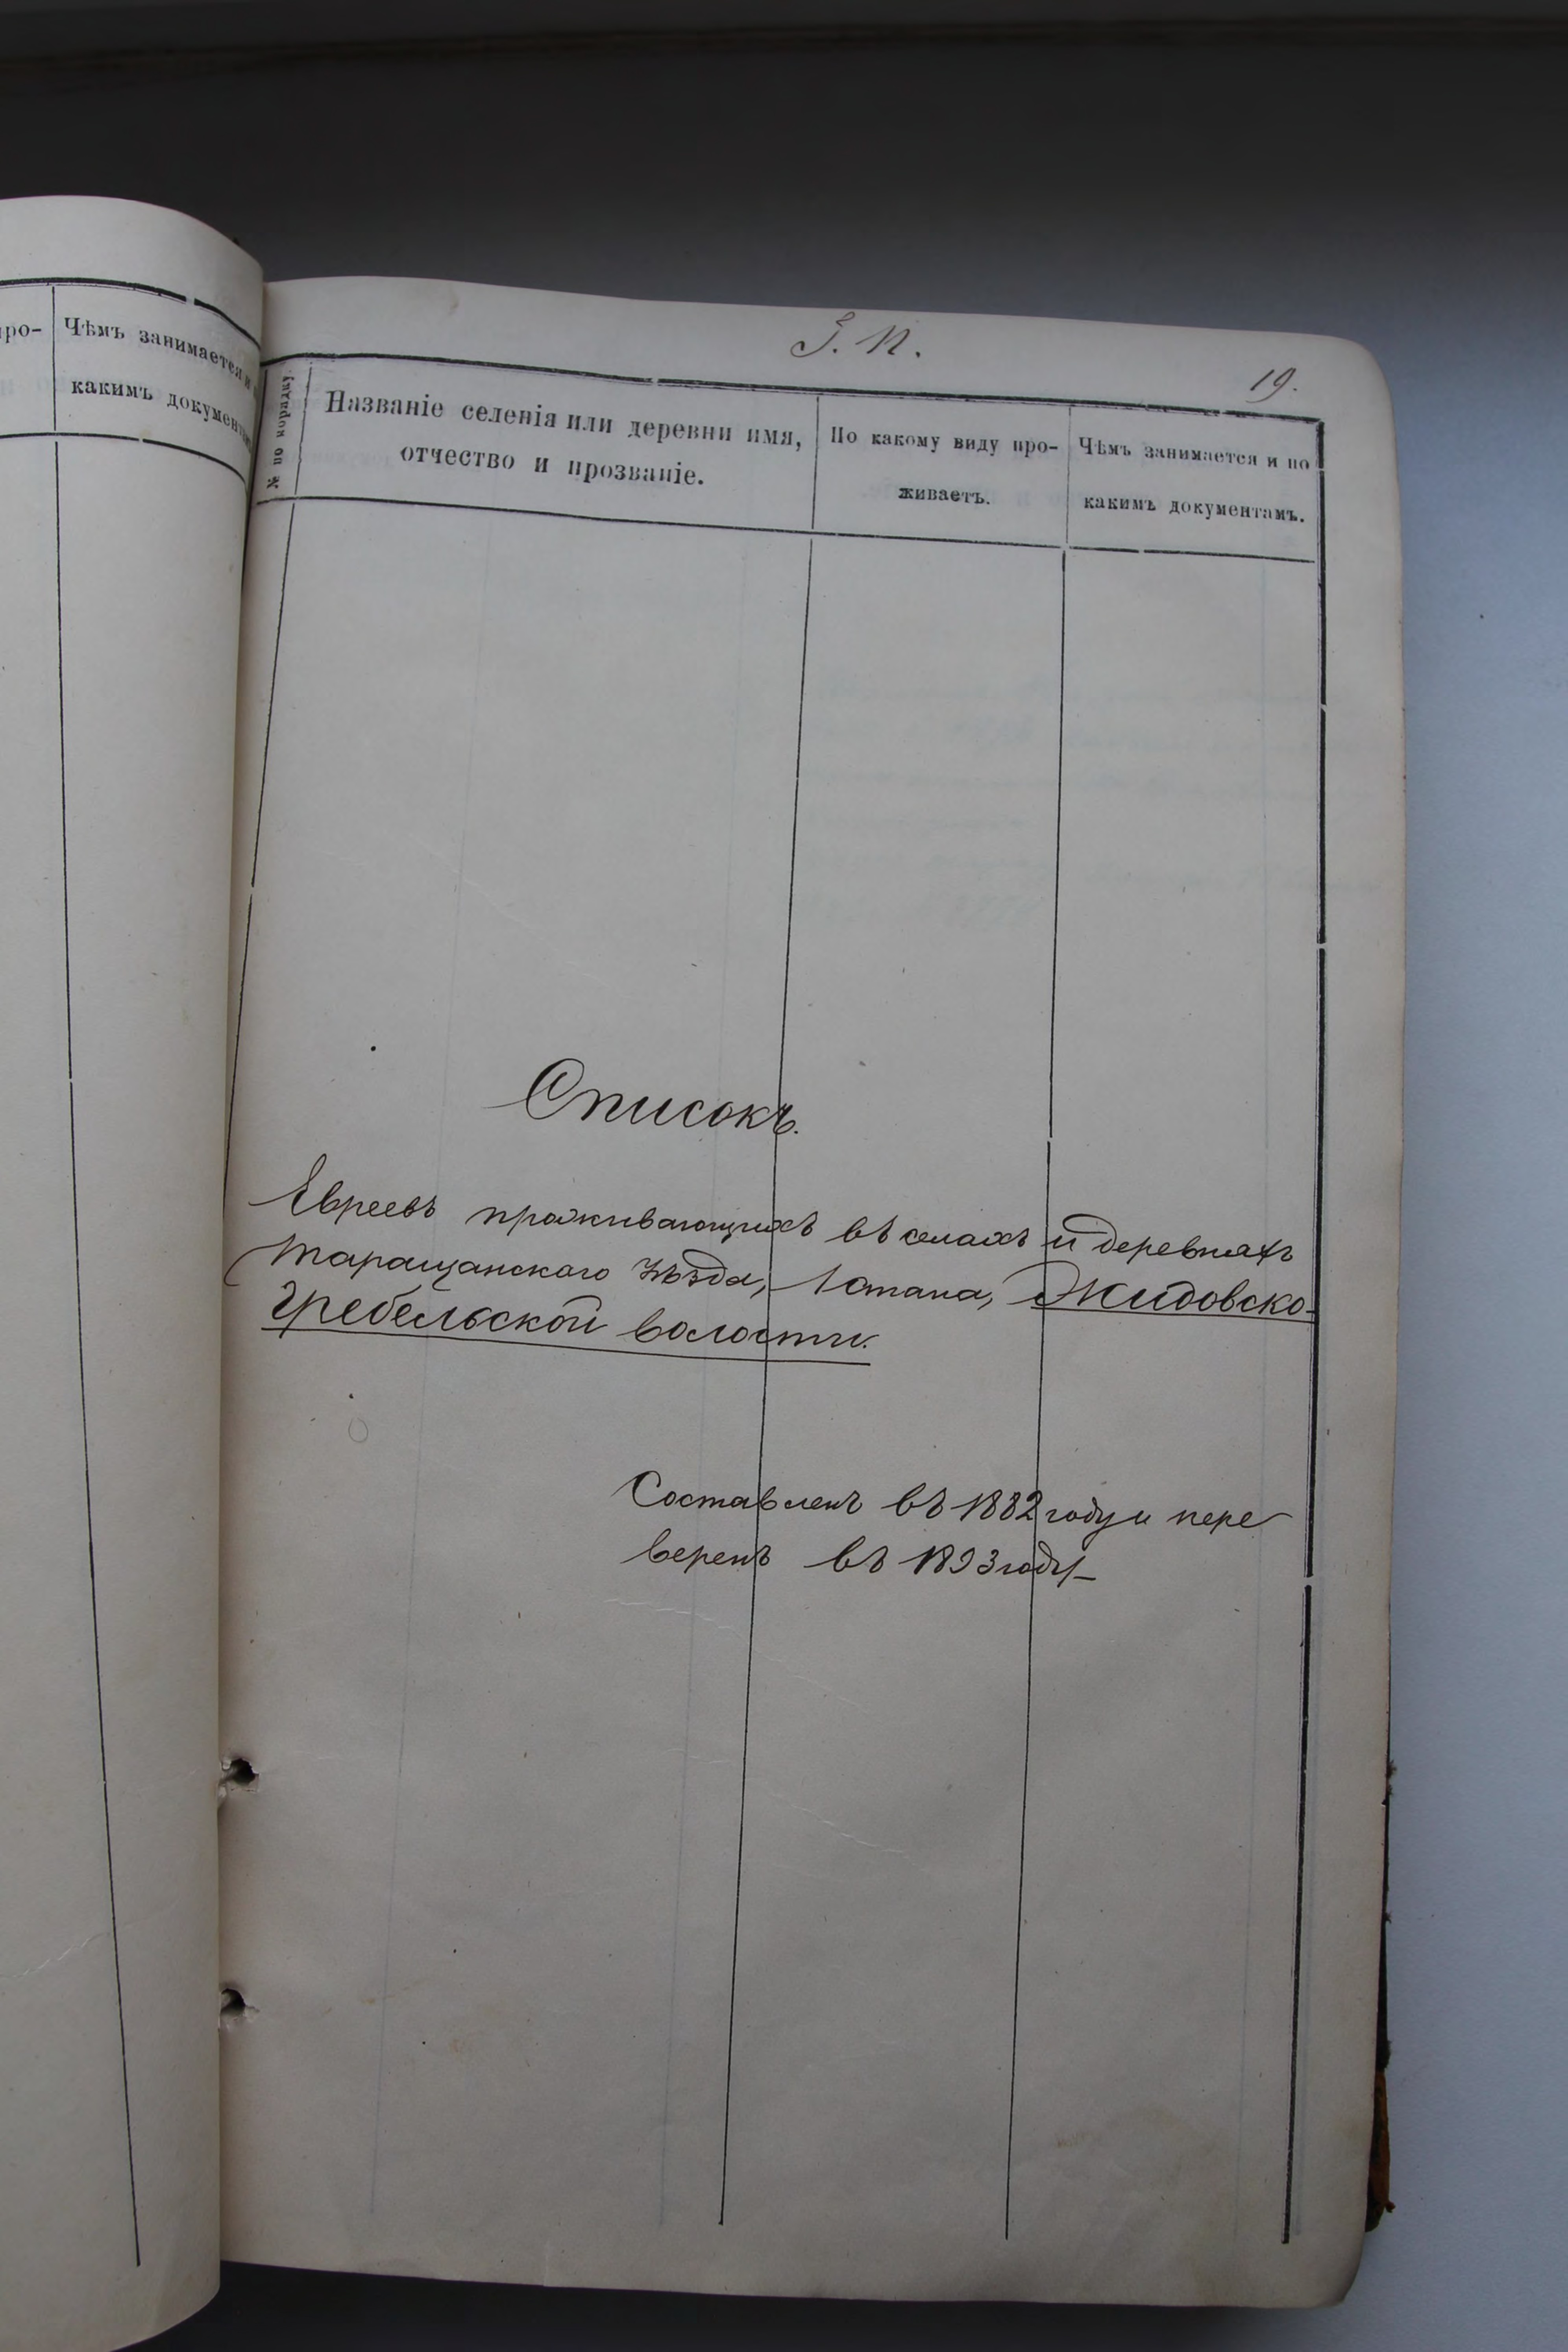 про-
Чѣмъ занимается и
какимъ документ
З. П.
19.
№ по порядку.
Названіе селенія или деревни имя,
отчество и прозваніе.
По какому виду про-
живаетъ.
Чѣмъ занимается и по
какимъ документамъ.
Списокъ.
Евреевъ проживающихъ въ селахъ и деревняхъ
Таращанскаго уѣзда, 1 стана, Жидовско-
гребельской волости.
Составленъ въ 1882 году и пере
веренъ въ 1893 году